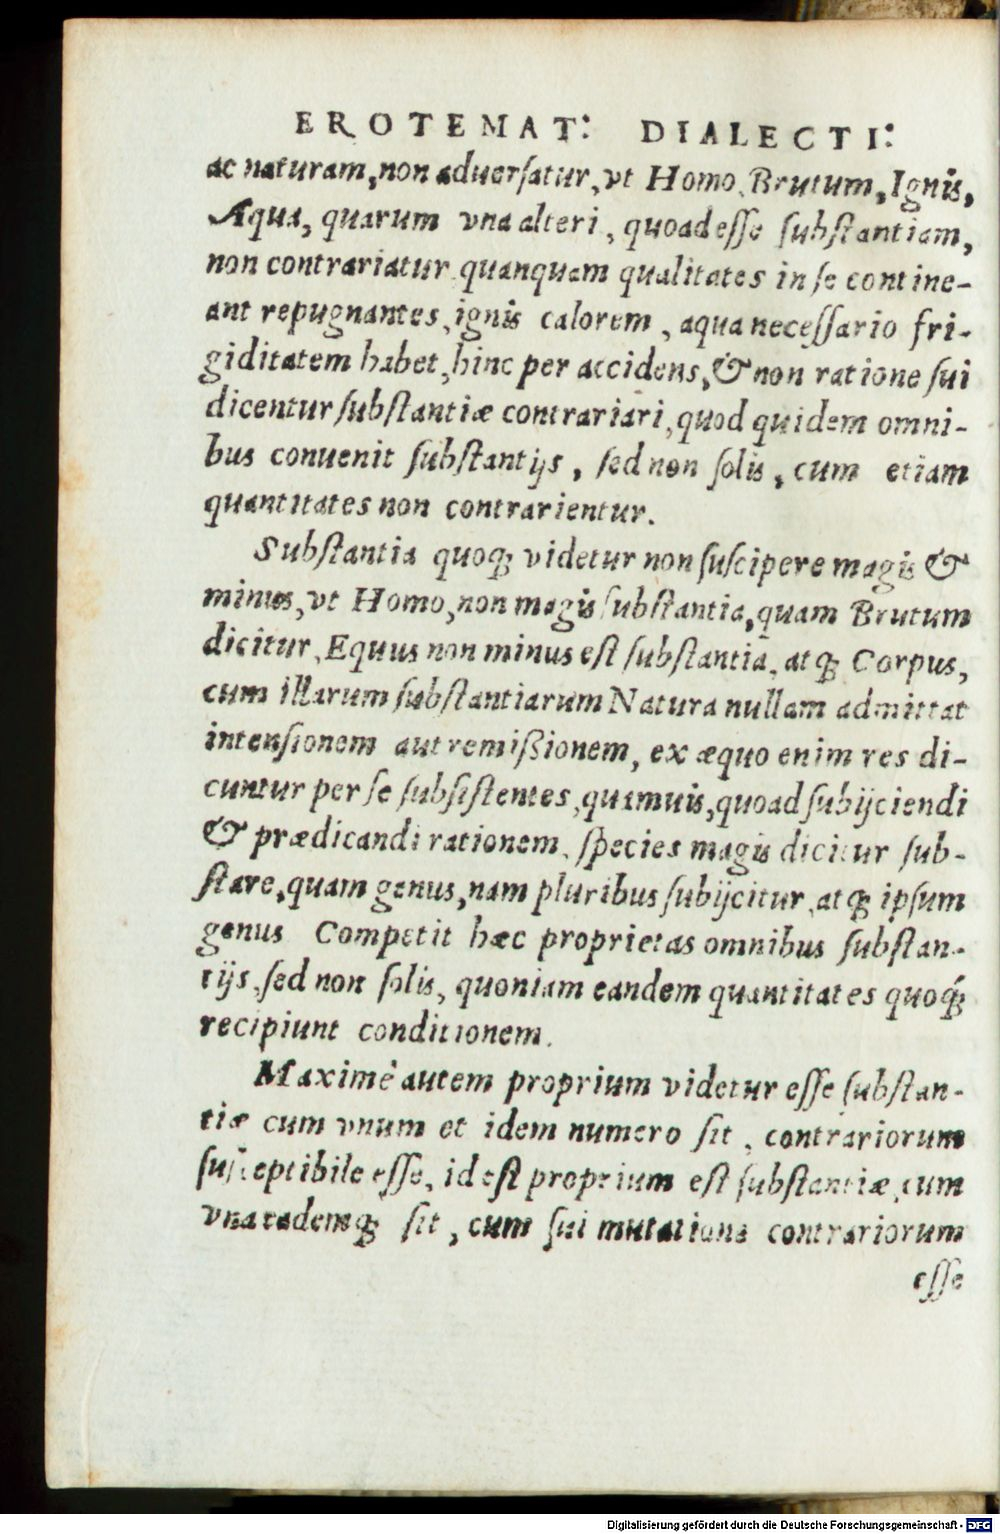 EROTEMAT: DIALECTI:
ac naturam, non aduerſatur, vt Homo, Brutum, Ignis,
Aqua, quarum vna alteri, quoad eſſe ſubſtantiam,
non contrariatur quanquam qualitates in ſe contine-
ant repugnantes, ignis calorem, aqua neceſſario fri-
giditatem habet, hinc per accidens, & non ratione ſui
dicentur ſubſtantiæ contrariari, quod quidem omni-
bus conuenit ſubſtantijs, ſed non ſolis, cum etiam
quantitates non contrarientur.
Subſtantia quoqꝫ videtur non ſuſcipere magis &
minus, vt Homo, non magis ſubſtantia, quam Brutum
dicitur, Equus non minus eſt ſubſtantia, atqꝫ Corpus,
cum illarum ſubſtantiarum Natura nullam admittat
intenſionem aut remißionem, ex æquo enim res di-
cuntur per ſe ſubſiſtentes, quamuis, quoad ſubijciendi
& prædicandi rationem, ſpecies magis dicitur ſub-
ſtare, quam genus, nam pluribus ſubijcitur, atqꝫ ipſum
genus Competit hæc proprietas omnibus ſubſtan-
tijs, ſed non ſolis, quoniam eandem quantitates quoqꝫ́
recipiunt conditionem.
Maximè autem proprium videtur eſſe ſubſtan-
tiæ cum vnum et idem numero ſit, contrariorum
ſuſceptibile eſſe, id eſt proprium eſt ſubſtantiæ, cum
vna eademqꝫ ſit, cum ſui mutatione contrariorum
eſſe
Digitalisierung gefördert durch die Deutsche Forschungsgemeinschaft - DFG